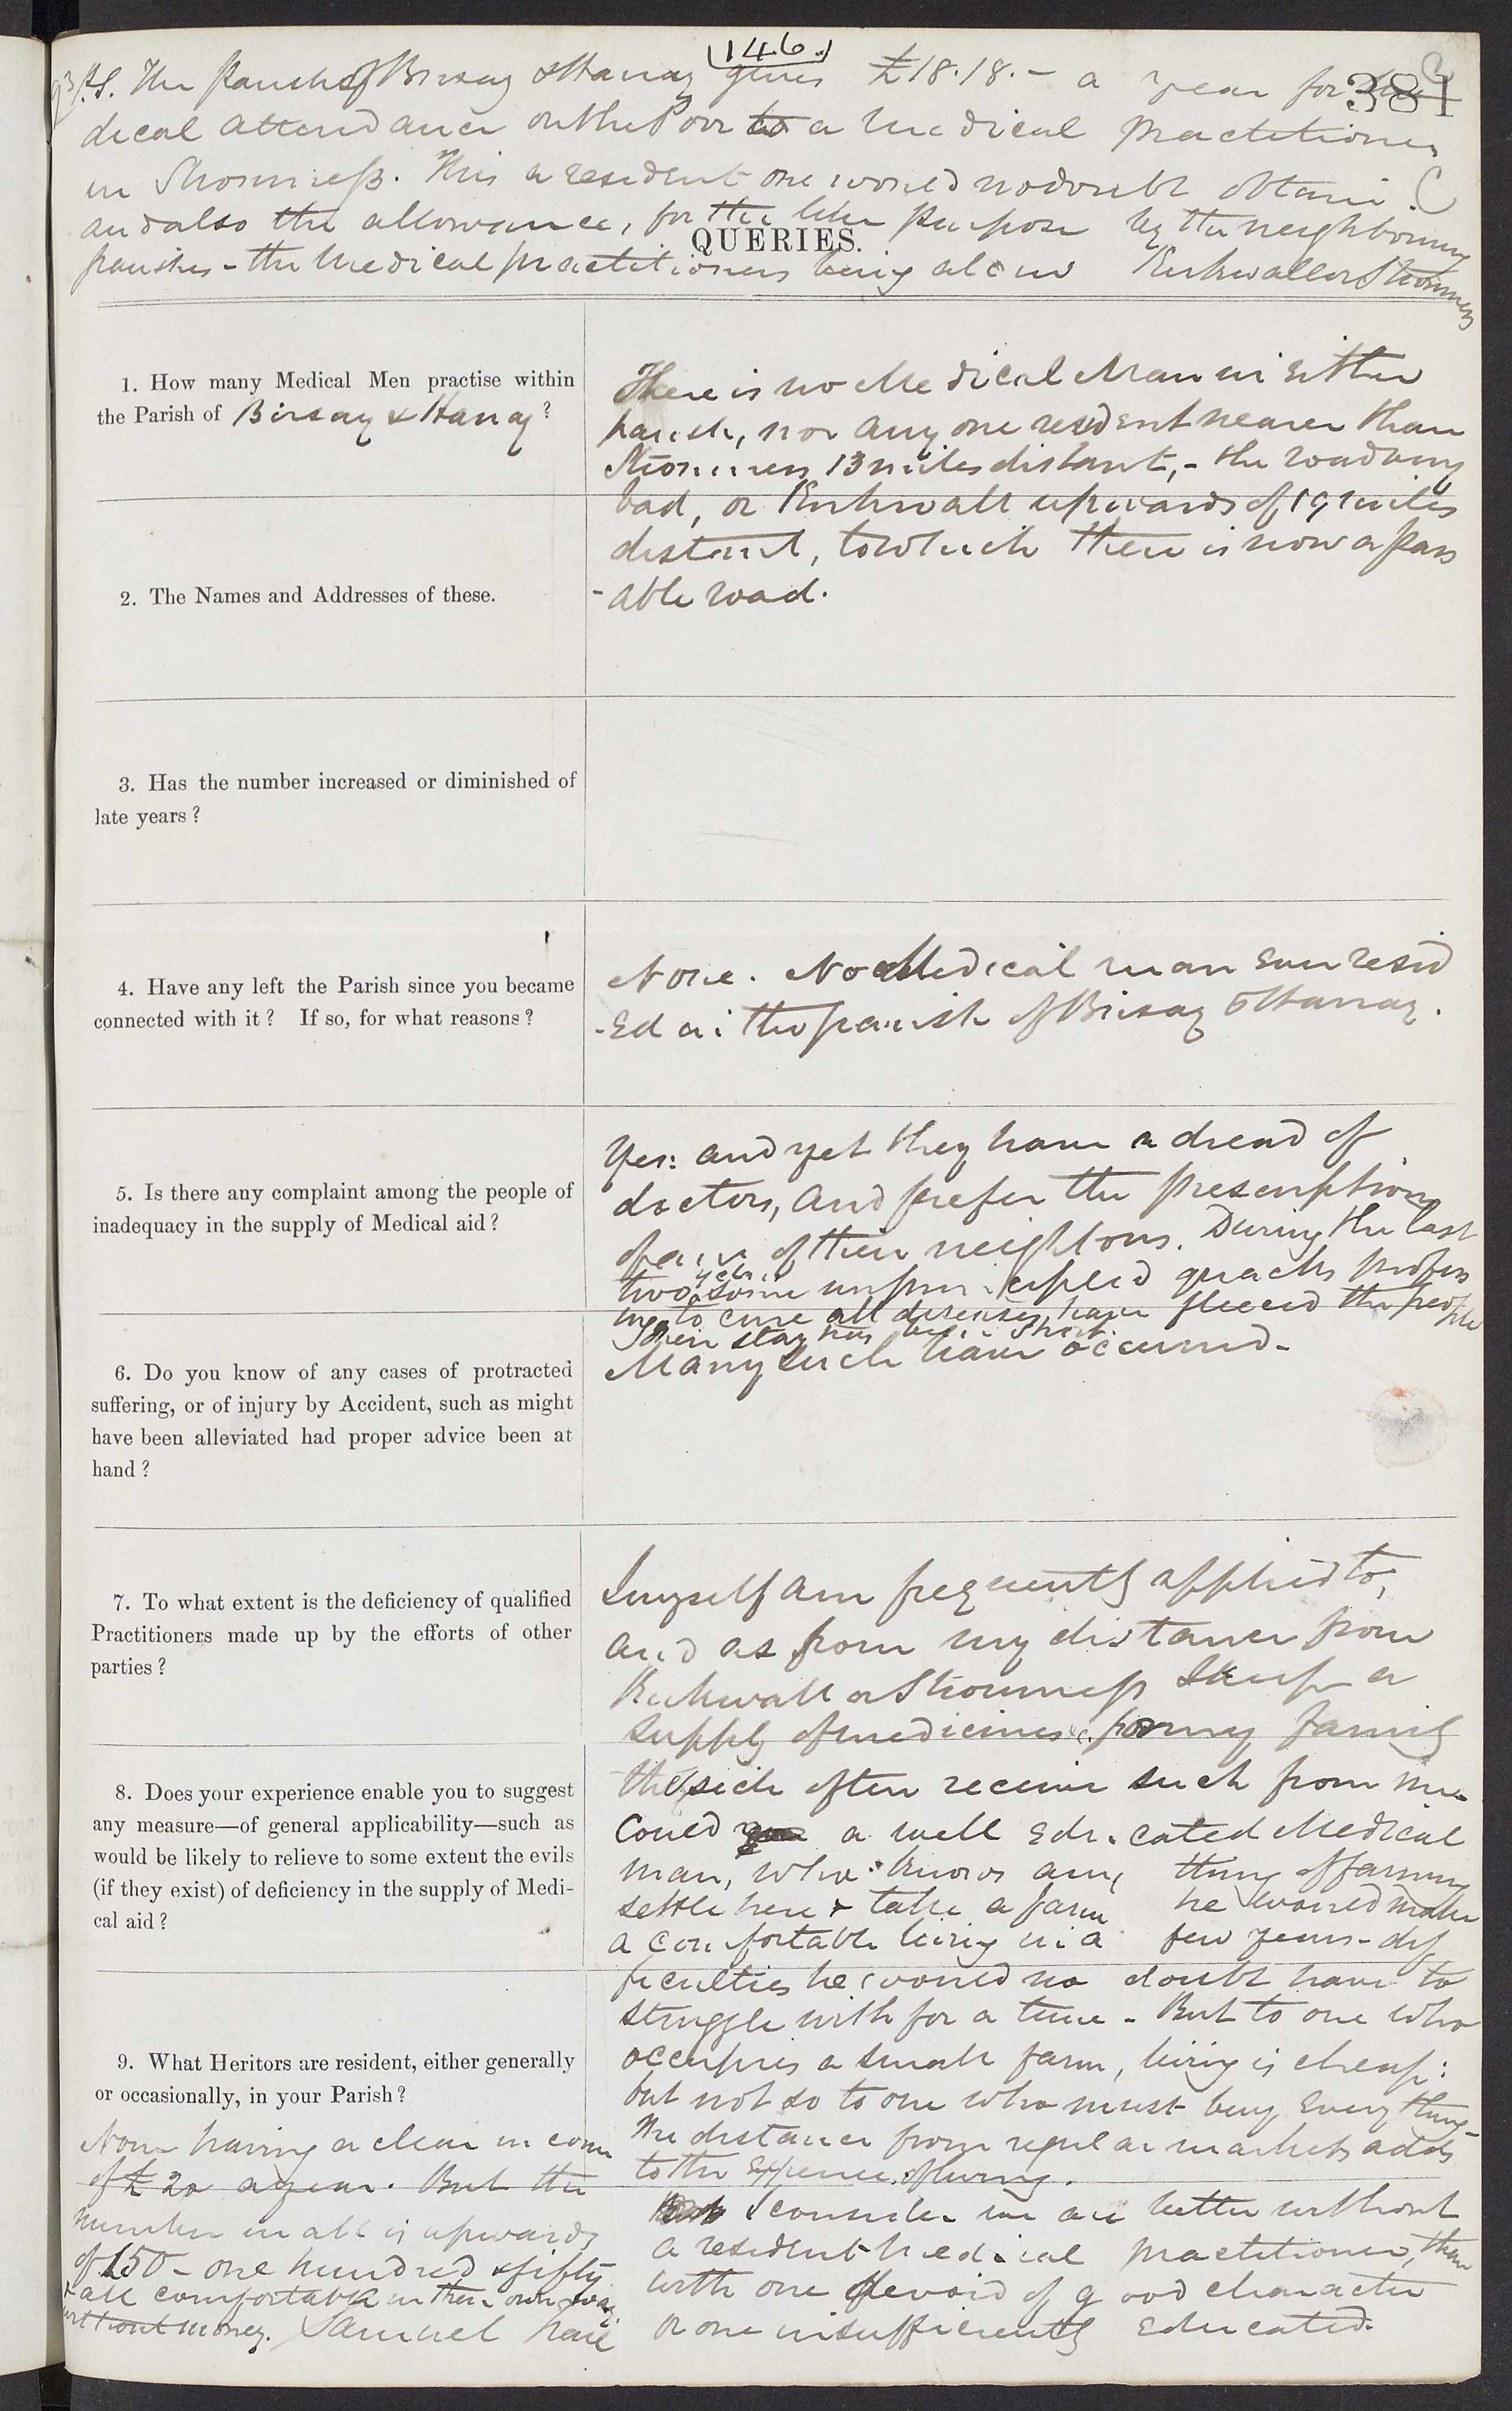 146.
381
P.S. The Parish of Birsay & Harray gives £18.18.- a year for Me
dical attendance on the Poor to a medical practitioner
in Stromness. This a resident one would no doubt obtain.
and also the allowance, for the like purpose by the neighbouring
parishes - the medical practitioners being all in Kirkwall or Stromness
QUERIES.
1. How many Medical Men practise within
the Parish of Birsay & Harray?
There is no Medical Man in either
parish, nor any one resident nearer than
Stromness 13 miles distant, - the road very
bad, or Kirkwall upwards of 19 miles
distant, to which there is now a pass
-able road.
2. The Names and Addresses of these.
3. Has the number increased or diminished of
late years?
4. Have any left the Parish since you became
connected with it? If so, for what reasons?
None. No Medical man ever resid
-ed in the parish of Birsay & Harray.
5. Is there any complaint among the people of
inadequacy in the supply of Medical aid?
Yes: and yet they have a dread of
doctors, and prefer the prescriptions
of any of their neighbours. During the last
two years some unprincipled quacks profess
ing to cure all diseases, have fleeced the people
Their stay has been short.
6. Do you know of any cases of protracted
suffering, or of injury by Accident, such as might
have been alleviated had proper advice been at
hand?
Many such have occurred.
7. To what extent is the deficiency of qualified
Practitioners made up by the efforts of other
parties?
I myself am frequently applied to,
and as from my distance from
Kirkwall or Stromness I keep a
supply of medicines &c. for my family
the sick often receive such from me.
8. Does your experience enable you to suggest
any measure—of general applicability—such as
would be likely to relieve to some extent the evils
(if they exist) of deficiency in the supply of Medi-
cal aid?
Could a well educated Medical
man, who knows any thing of farming
settle here & take a farm he would make
a comfortable living in a few years - dif
ficulties he would no doubt have to
struggle with for a time - But to one who
occupies a small farm, living is cheap:
but not so to one who must buy every thing -
The distance from regular markets adds
to the expence of living.
I consider we are better without
a resident medical practitioner, than
with one devoid of good character
or one insufficiently educated.
9. What Heritors are resident, either generally
or occasionally, in your Parish?
None having a clear income
of £20 a year. But the
number in all is upwards
of 150 - one hundred & fifty
& all comfortable in their own way
without money. Samuel